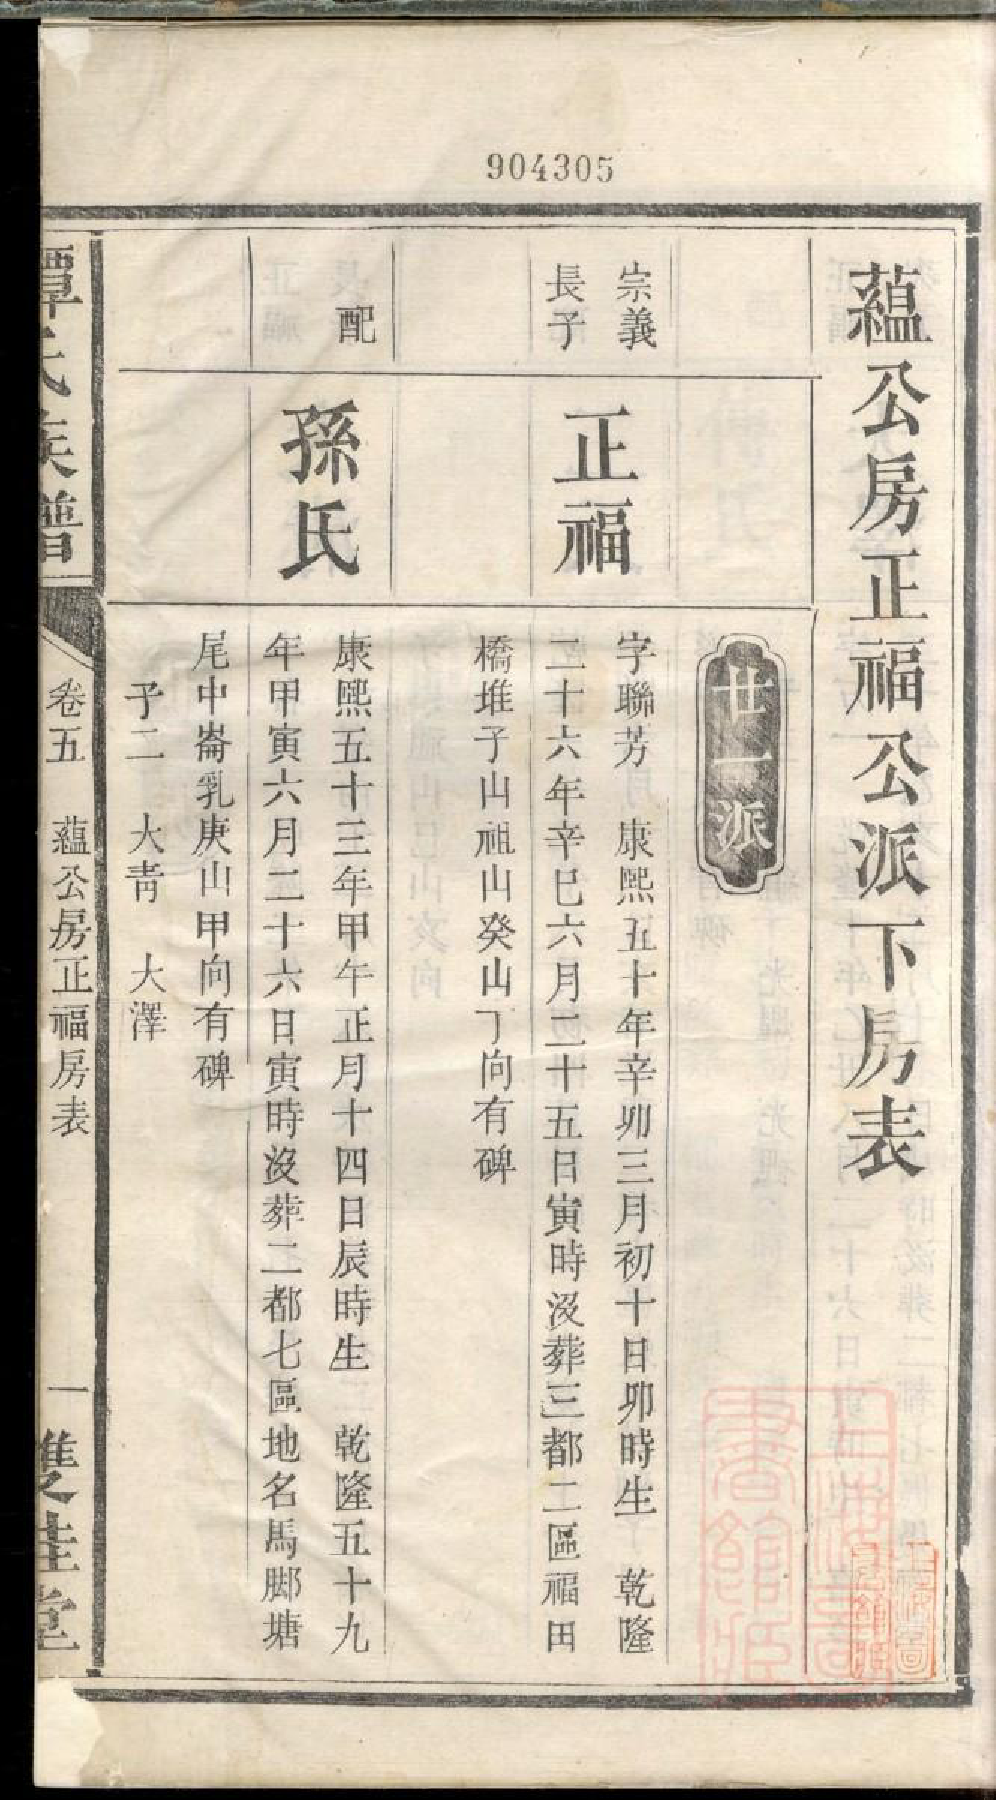 904305
蘊公房正福公派下房表
廿一派
宗義
長子
正福
字聯芳 康熙五十年辛卯三月初十日卯時生 乾隆
二十六年辛巳六月二十五日寅時沒葬三都二區福田
橋堆子山祖山癸山丁向有碑
配
孫氏
康熙五十三年甲午正月十四日辰時生 乾隆五十九
年甲寅六月二十六日寅時沒葬二都七區地名馬脚塘
尾中崙乳庚山甲向有碑
子二 大靑 大澤
譚氏族譜
卷五 蘊公房正福房表
一
雙桂堂